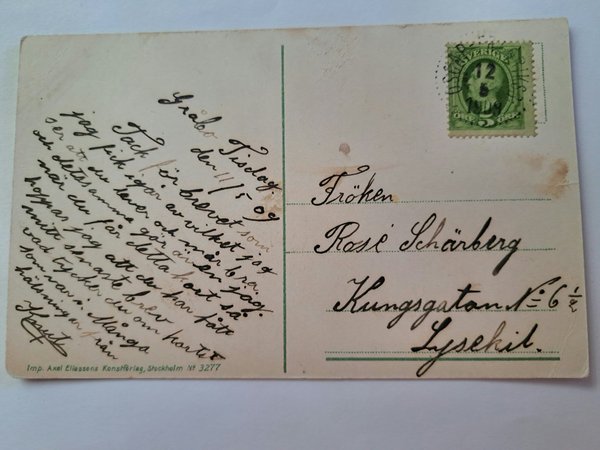 Gråbo Tisdag
den 11/5 09
Tack för brevet som
jag fick igår av vilket jag
ser att du lever och mår bra
och detsamma gör även jag.
når du får detta kort så
hoppas jag att du har fått
mitt senaste brev
vad tycker du om kortet
som var i. Många
hälsningar från
Knut
SVERIGE
12
5
1909
5
ÖRE
Fröken
Rosé Schärberg
Kungsgatan No 6 ½
Lysekil.
Imp. Axel Eliassons Konstförlag, Stockholm No 3277